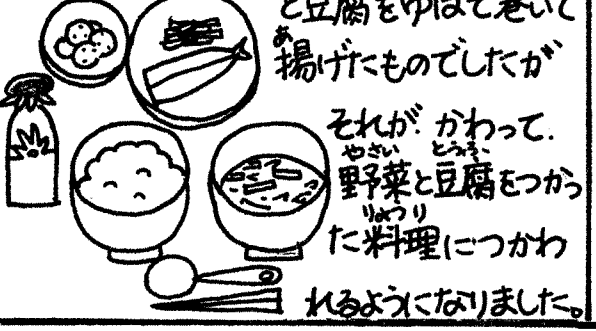 と豆腐をゆばで巻いて
あ
揚げたものでしたが
それが、かわって、
やさい とうふ
野菜と豆腐をつかっ
りょうり
た料理につかわ
れるようになりました。